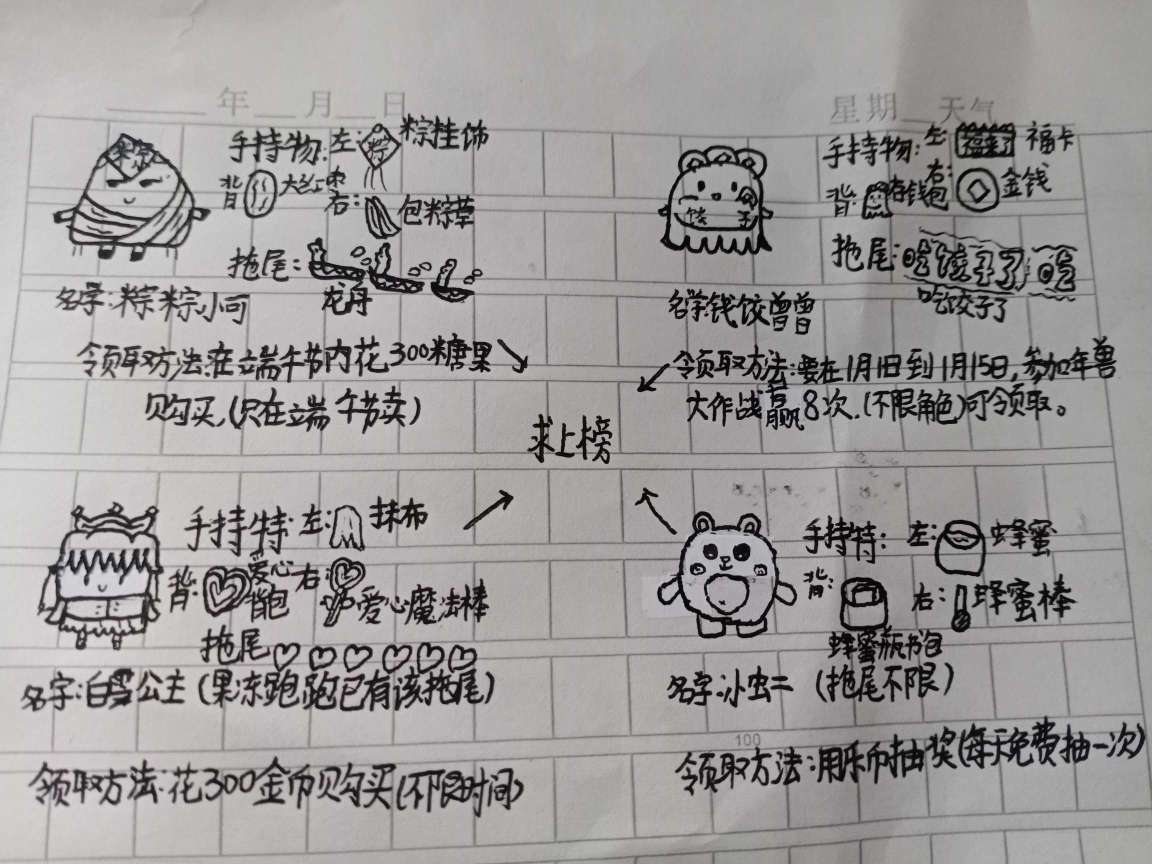 年 月 日
星期 天气
粽
手持物:左: 粽 粽挂饰
背 大红枣
右: 包粽草
拖尾:
龙舟
名字:粽粽小司
领取方法:在端午节内花300糖果
购买,(只在端午节卖)
饺子
手持物:左: 福 福卡
背: 存钱包 右: 金钱
拖尾:吃饺子了 吃
吃饺子了
名字:钱饺曾曾
领取方法:要在1月1日到1月15日,参加年兽
大作战赢8次.(不限角色)可领取。
求上榜
手持特:左: 抹布
背: 爱心背包 右: 爱心魔法棒
拖尾
名字:白雪公主(果冻跑跑已有该拖尾)
领取方法:花300金币购买(不限时间)
手持特: 左: 蜂蜜
背: 右: 蜂蜜棒
蜂蜜瓶书包
名字:小虫二 (拖尾不限)
100
领取方法:用乐币抽奖(每天免费抽一次)